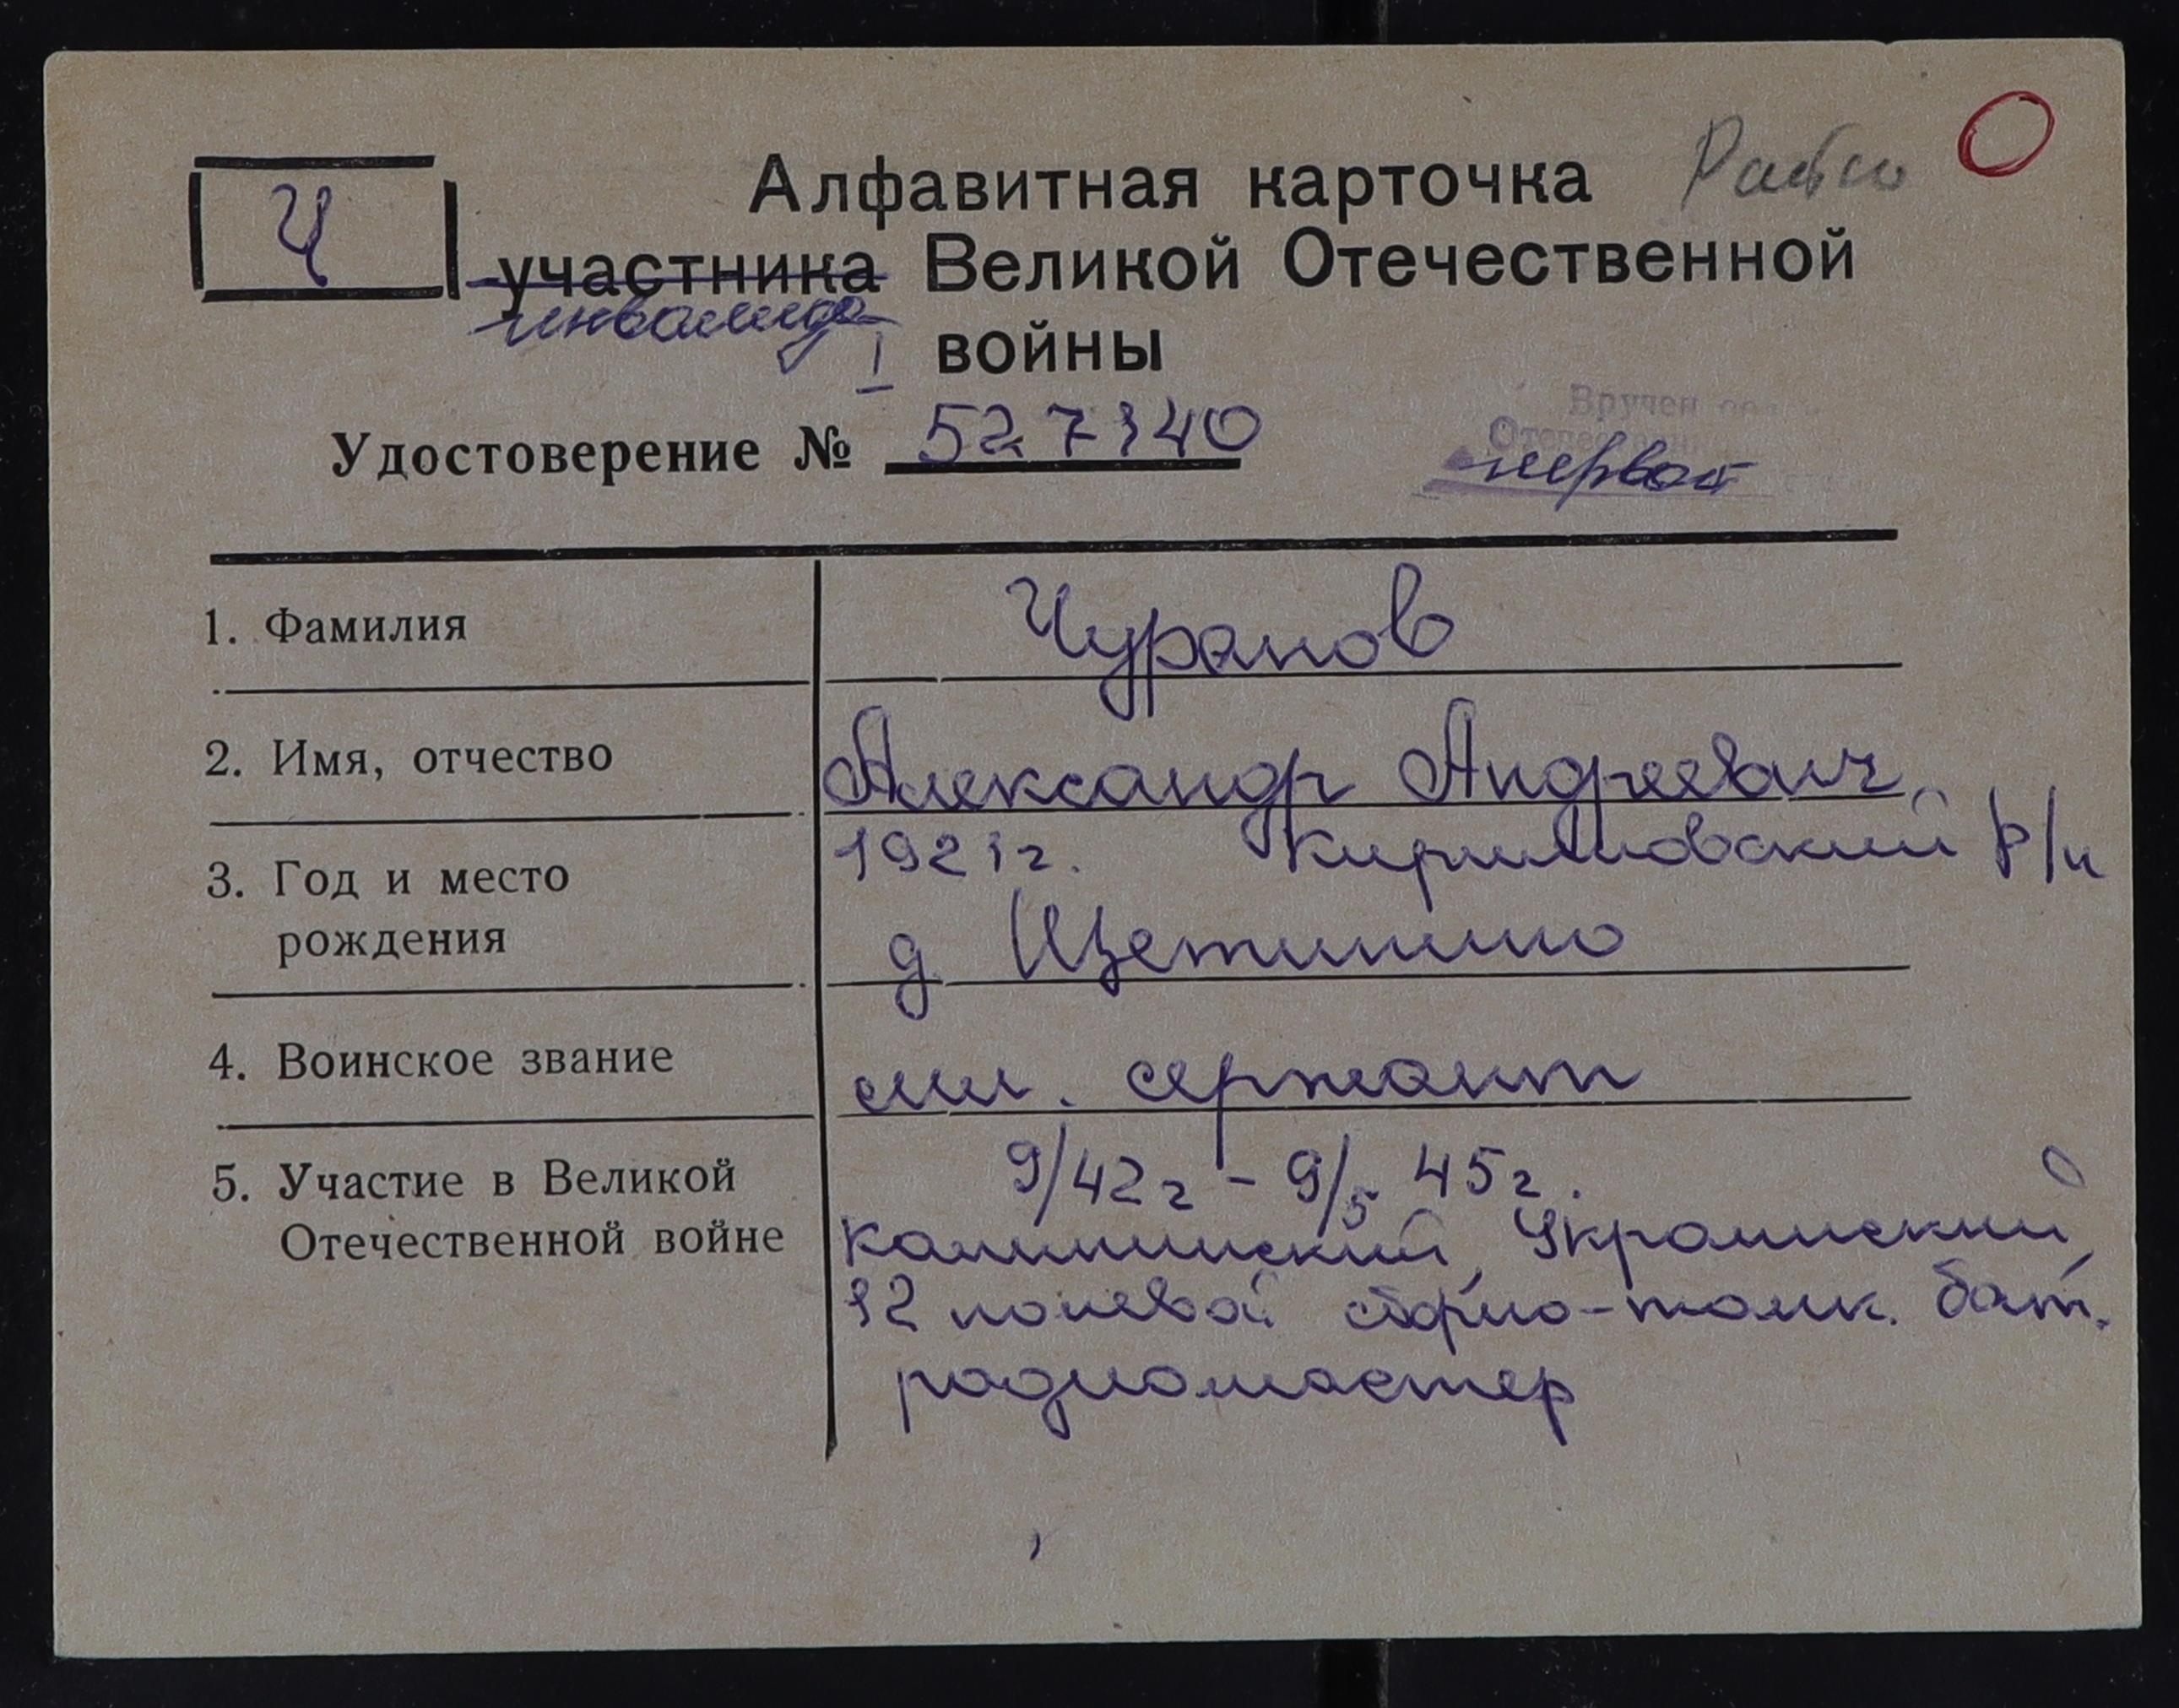 Ч
Алфавитная карточка
участника Великой Отечественной
инвалида I войны
Удостоверение № 527140
Вручен
первой
1. Фамилия Чуранов
2. Имя, отчество Александр Андреевич
3. Год и место рождения 1921г. Кирилловский р/н
д Щетинино
4. Воинское звание мл. сержант
5. Участие в Великой Отечественной войне 9/42г - 9/5 45г.
Калининский, Украинский
12 полевой -танк. бат.
радиомастер